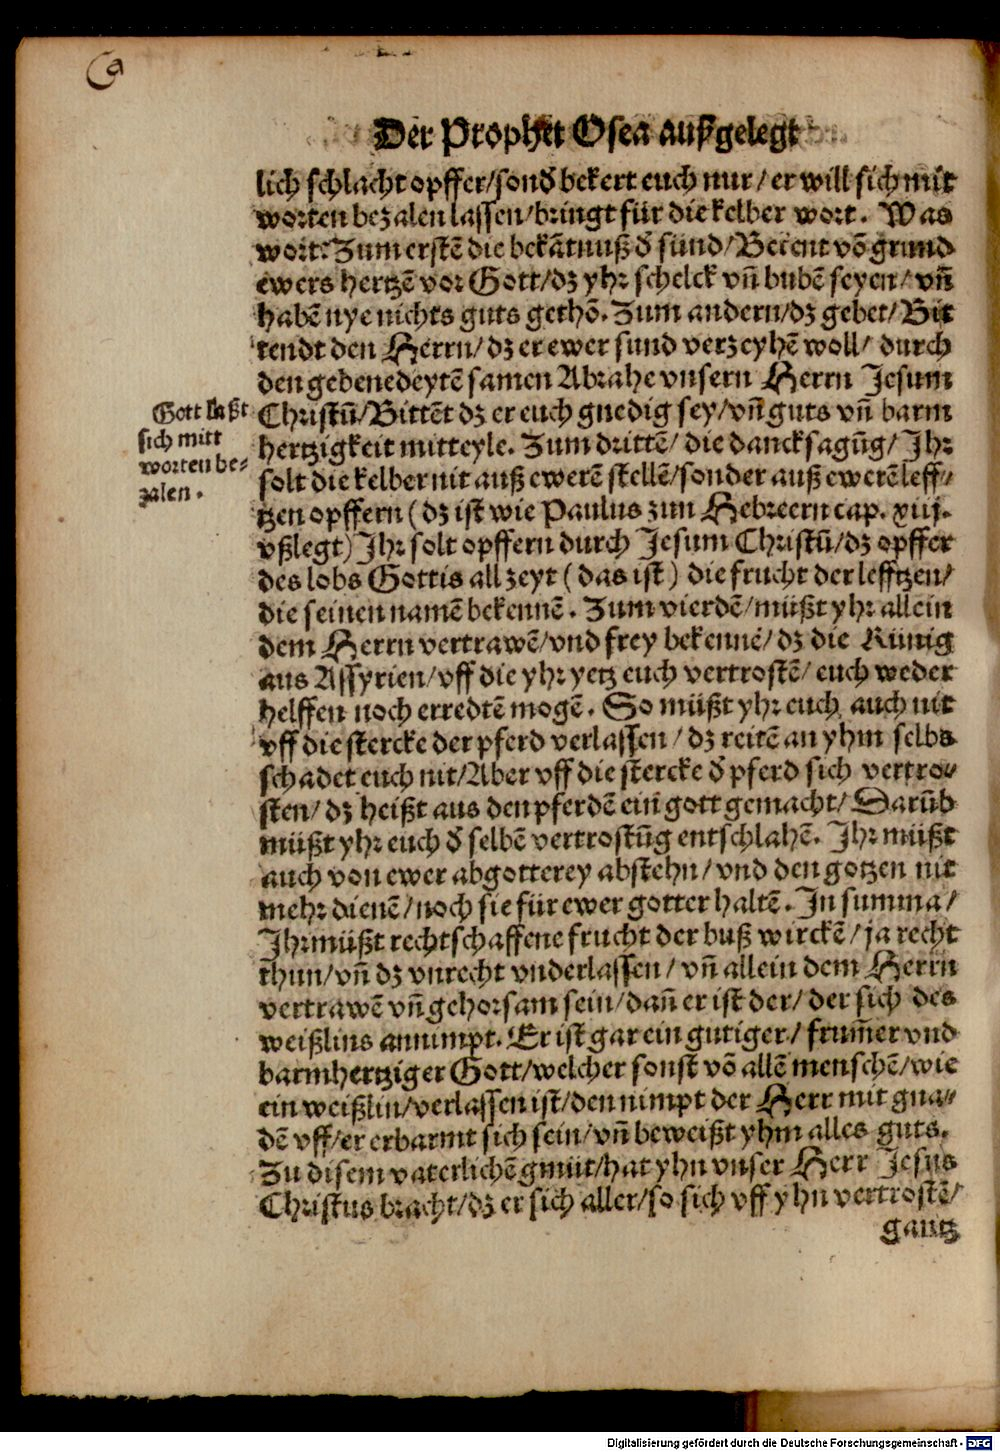 Der Prophet Osea außgelegt
lich schlacht opffer/sonđ bekert euch nur/ er will sich mit
worten bezalen lassen/bringt für die kelber wort. Was
wort? Zum erstē die bekātnuß đ sünd/Beient vō grund
ewers hertzē vor Gott/dz yhr schelck vñ bubē seyen/ vñ
habē nye nichts guts gethō. Zum andern/dz gebet/Bit
tendt den Herrn/ dz er ewer sund verzeyhē woll/ durch
den gebenedeytē samen Abrahe vnsern Herrn Jesum
Christū/Bittēt dz er euch gnedig sey/vñ guts vñ barm
hertzigkeit mitteyle. Zum drittē/ die dancksagūg/ Ihr
solt die kelber nit auß ewerē stellē/sonder auß ewerē leff⸗
tzen opffern (dz ist wie Paulus zun Hebreern cap. xiij.
vßlegt) Ihr solt opffern durch Jesum Christū/dz opffer
des lobs Gottis all zeyt (das ist) die frucht der lefftzen/
die seinen namē bekennē. Zum vierdē/müßt yhr allein
dem Herrn vertrawē/vnd frey bekennē/ dz die Künig
aus Assyrien/vff die yhr yetz euch vertrostē/ euch weder
helffen noch erredtē mogē. So müßt yhr euch auch nit
vff die stercke der pferd verlassen/ dz reitē an yhm selbs
schadet euch nit/Aber vff die stercke đ pferd sich vertro⸗
sten/ dz heißt aus den pferdē ein gott gemacht/ Darūb
müßt yhr euch đ selbē vertrostūg entschlahē. Ihr müßt
auch von ewer abgotterey abstehn/vnd den gotzen nit
mehr dienē/noch sie für ewer gotter haltē. In summa/
Ihr müßt rechtschaffene frucht der buß wirckē/ja recht
thun/vñ dz vnrecht vnderlassen/ vñ allein dem Herrn
vertrawē vñ gehorsam sein/dañ er ist der/ der sich des
weißlins annimpt. Er ist gar ein gutiger/ frum̄er vnd
barmhertziger Gott/welcher sonst vō allē menschē/wie
ein weißlin/verlassen ist/den nimpt der Herr mit gna⸗
dē vff/er erbarmt sich sein/vñ beweißt yhm alles guts.
Zu disem vaterlichē gmüt/hat yhn vnser Herr Jesus
Christus bracht/dz er sich aller/so sich vff yhn vertrostē/
gantz
Gott laßt
sich mitt
worten be⸗
zalen.
Digitalisierung gefördert durch die Deutsche Forschungsgemeinschaft - DFG